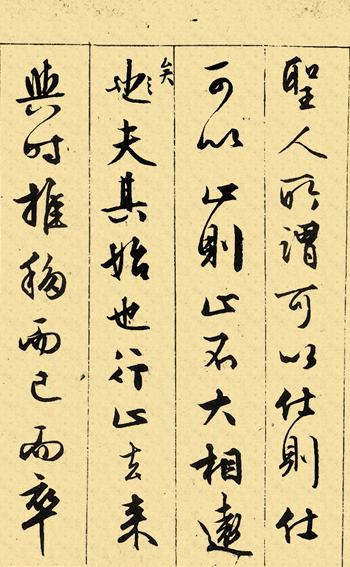 聖人所謂可以仕則仕
可以止則止不大相遠
也矣夫其始也行止去来
與时推移而已而卒